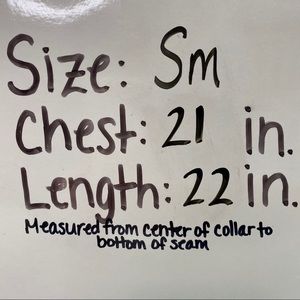 Size: Sm
Chest: 21 in.
Length: 22 in.
Measured from center of collar to
bottom of seam